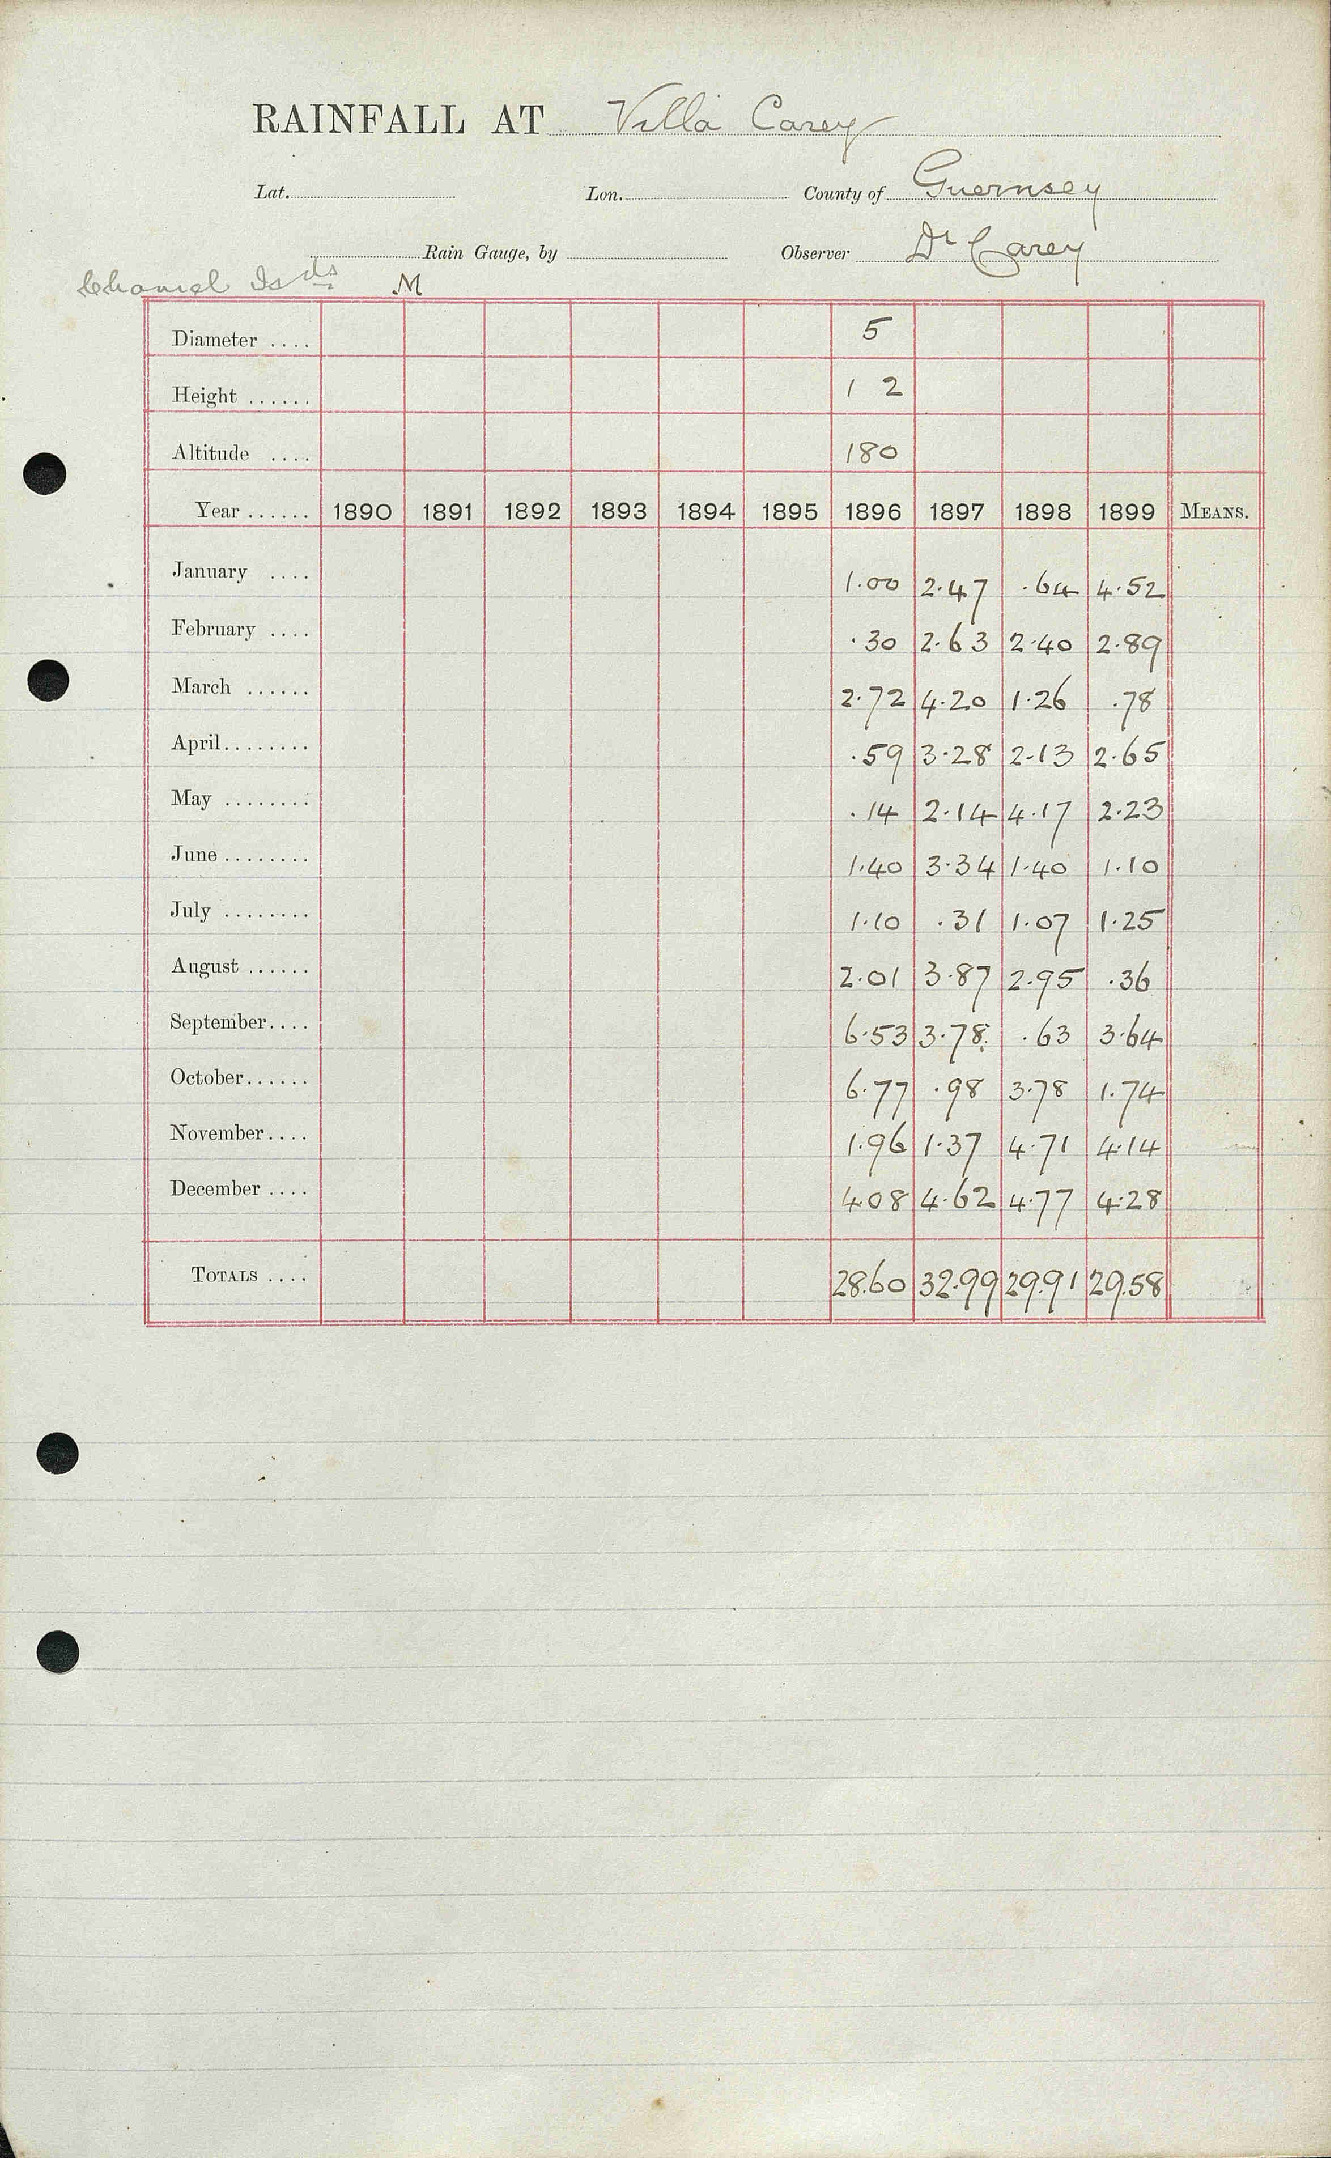 RAINFALL AT Villa Carey
Lat. Lon. County of Guernsey
Rain Gauge, by Observer Dr Carey
Channel Isds M
Diameter .... 5
Height ...... 1 2
Altitude .... 180
Year ...... 1890 1891 1892 1893 1894 1895 1896 1897 1898 1899 MEANS.
January .... 1.00 2.47 .64 4.52
February .... .30 2.63 2.40 2.89
March ...... 2.72 4.20 1.26 .78
April........ .59 3.28 2.13 2.65
May ........ .14 2.14 4.17 2.23
June ........ 1.40 3.34 1.40 1.10
July ........ 1.10 .31 1.07 1.25
August ...... 2.01 3.87 2.95 .36
September.... 6.53 3.78 .63 3.64
October...... 6.77 .98 3.78 1.74
November.... 1.96 1.37 4.71 4.14
December .... 4.08 4.62 4.77 4.28
TOTALS .... 28.60 32.99 29.91 29.58